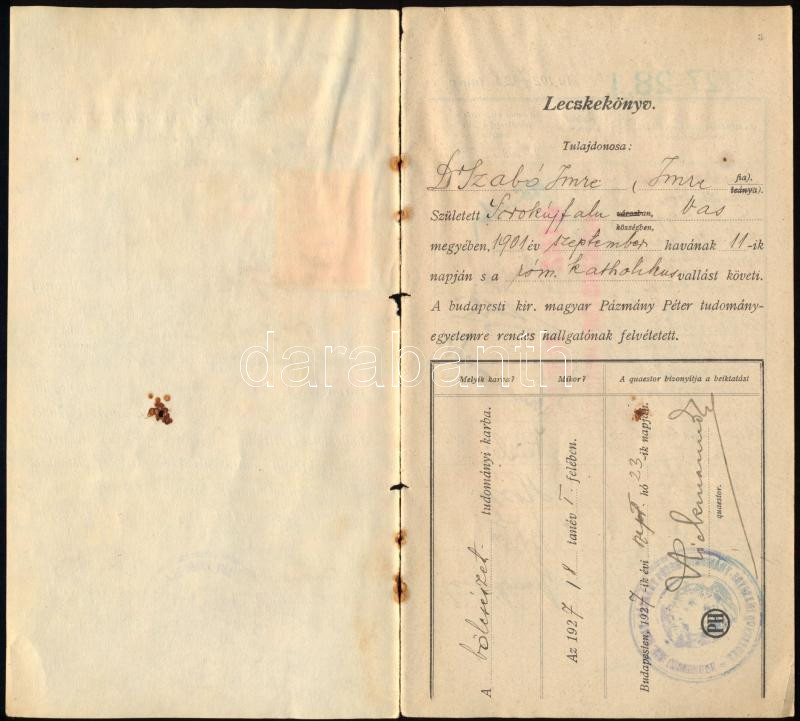 3
Leczkekönyv.
Tulajdonosa:
Dr Szabó Imre, Imre fia).
leánya).
Született Sorokújfalu városban, Vas
községben,
megyében, 1901 év szeptember havának 11-ik
napján s a róm. katholikus vallást követi.
A budapesti kir. magyar Pázmány Péter tudomány-
egyetemre rendes hallgatónak felvétetett.
Melyik karba? Mikor? A quaestor bizonyítja a beiktatást
A bölcsészet- tudományi karba.
Az 1927/18 tanév I felében.
Budapesten, 1927-ik évi szept hó 23-ik napján.
quaestor.
PH
darabanth